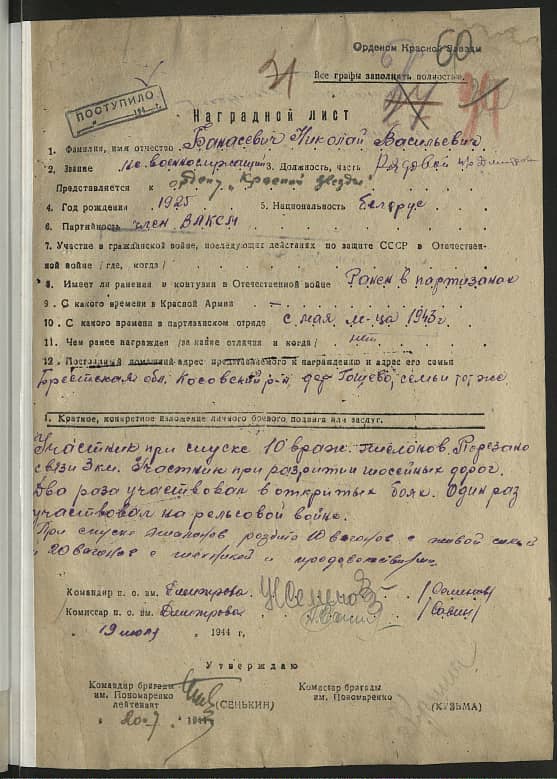 Орденом Красной Звезды
60
Все графы заполнять полностью.
ПОСТУПИЛО
Наградной лист
1. Фамилия, имя отчество Банасевич Николай Васильевич
2. Звание не военнослужащий 3. Должность, часть Рядовой
Представляется к ордену „Красной звезды"
4. Год рождения 1925 5. Национальность Белорус
6. Партийность член ВЛКСМ
7. Участие в гражданской войне, последующих действиях по защите СССР в Отечествен-
ной войне /где, когда/
8. Имеет ли ранения и контузии в Отечественной войне Ранен в партизанах
9. С какого времени в Красной Армии —
10. С какого времени в партизанском отряде с мая м-ца 1943г.
11. Чем ранее награжден /за какие отличия и когда/ нет
12. Постоянный домашний адрес представляемого к награждению и адрес его семьи
Брестская обл. Косовский р-н дер Гощево, семьи тот же
1. Краткое, конкретное изложение личного боевого подвига или заслуг.
Участник при спуске 10 враж. эшелонов. Порезано
связи 3 км. Участник при разрытии шосейных дорог.
Два раза участвовал в открытых боях. Один раз
участвовал на рельсовой войне.
При спуске эшалонов розбито 10 вагонов с живой силой
и 20 вагонов с техникой и продовольствием
Командир п. о. им. Димитрова
Комиссар п. о. им. Димитрова
" 19 июля " 1944 г.
Утверждаю
Командир бригады
им. Пономаренко
лейтенант (СЕНЬКИН)
Комиссар бригады
им. Пономаренко
(КУЗЬМА)